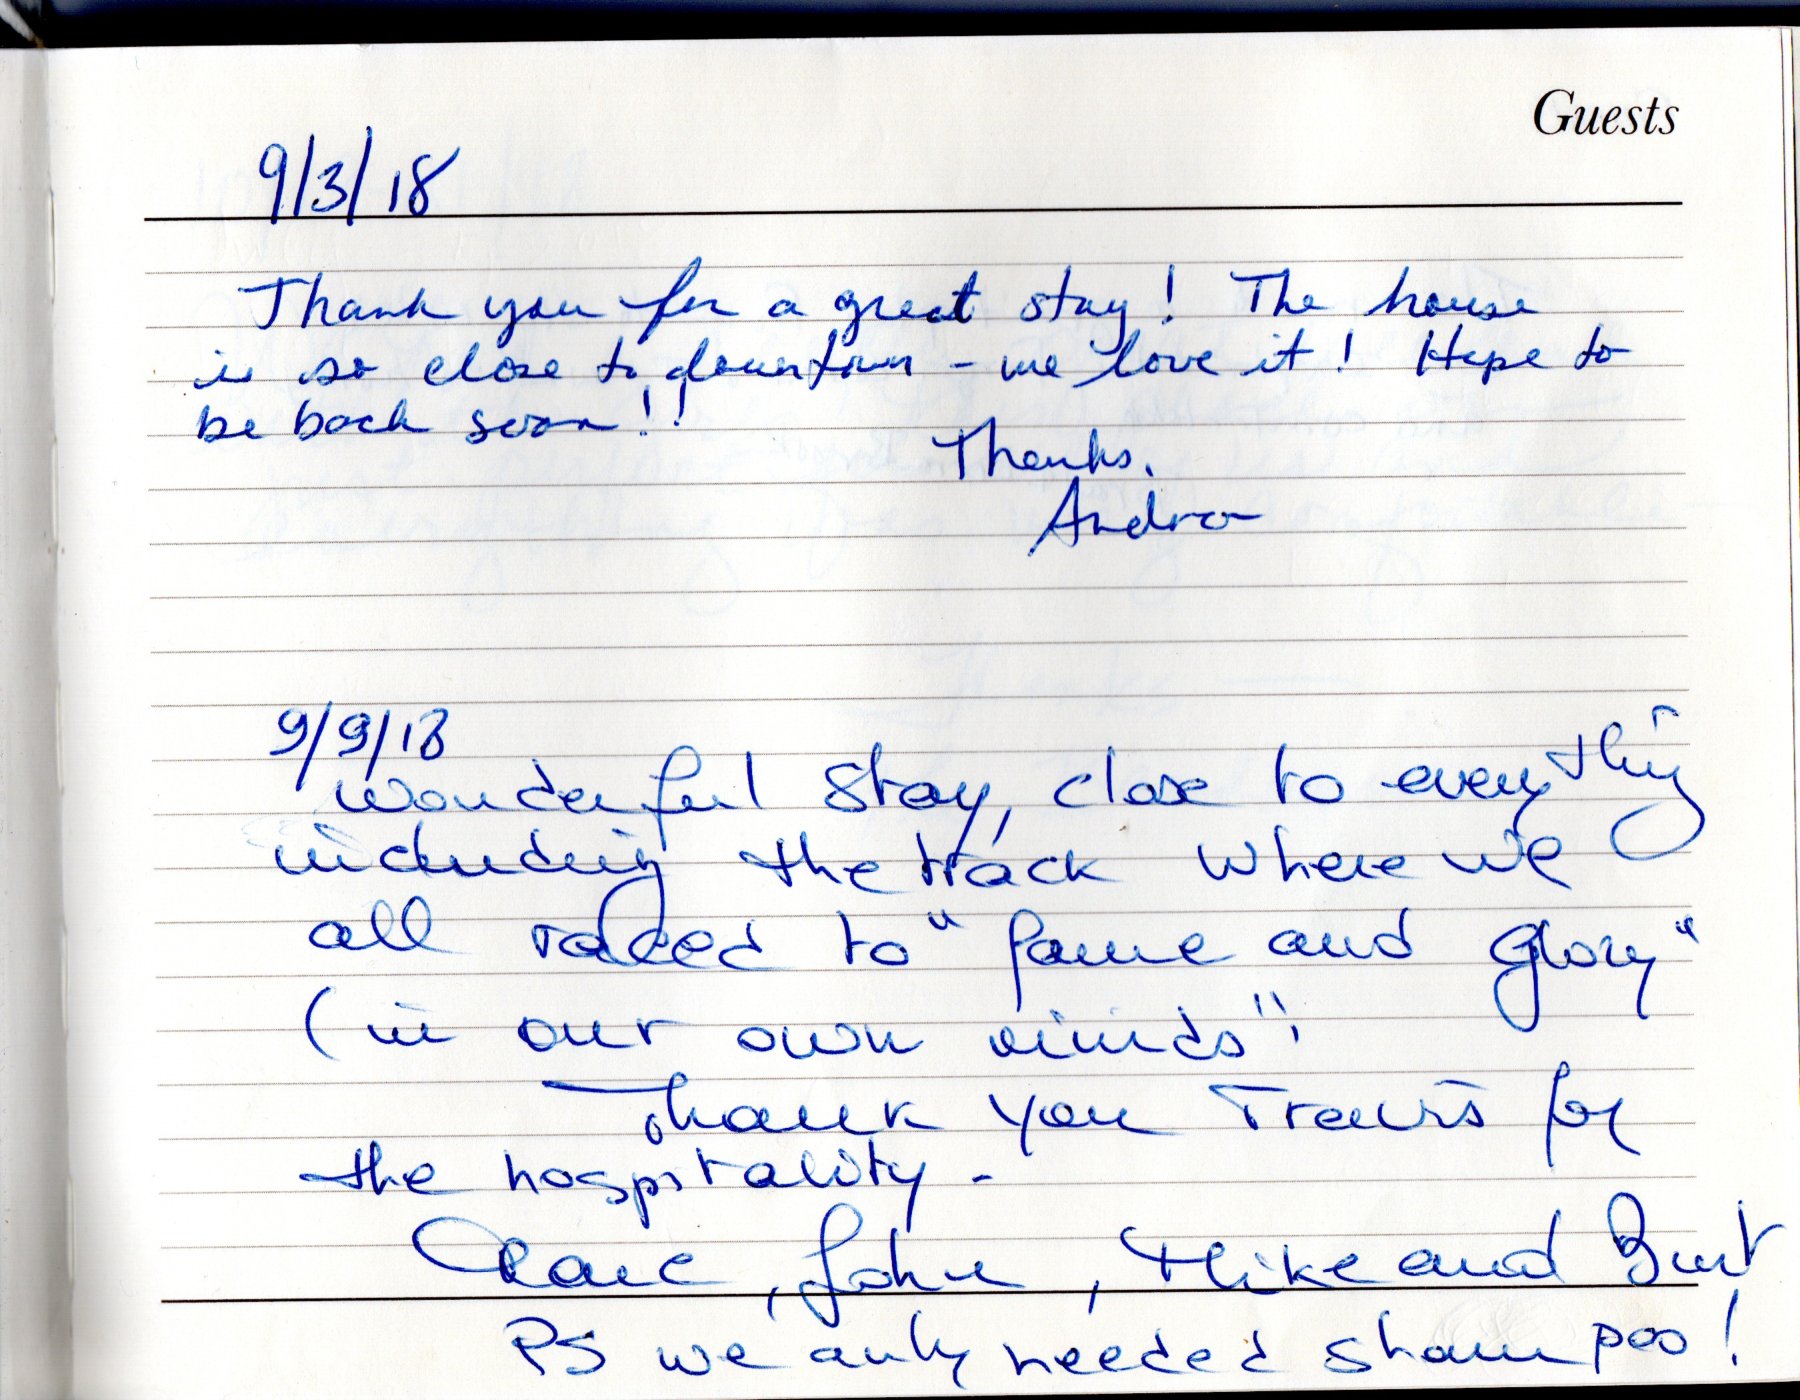 Guests
9/3/18
Thank you for a great stay! The house
is so close to downtown - we love it! Hope to
be back soon!!
Thanks,
Andrea
9/9/18
Wonderful Stay, close to everything
including the track where we
all raced to "fame and glory"
(in our own minds"!
Thank you Travis for
the hospitality -
John, Mike and Burt
PS we only needed shampoo!